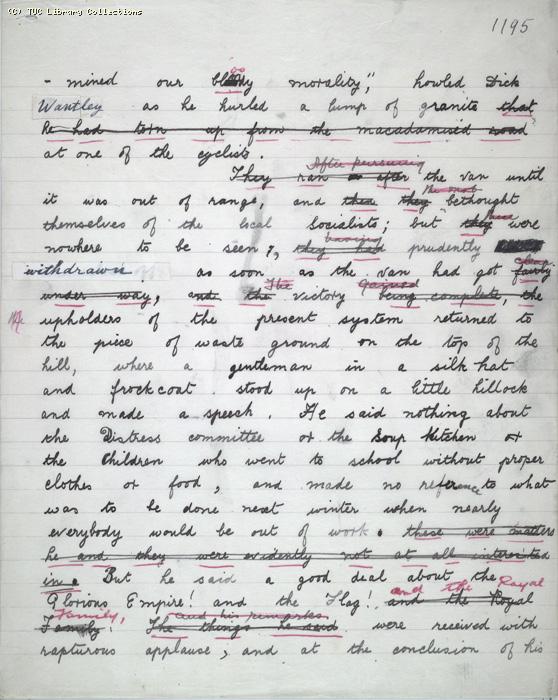 (C) TUC Library Collections
1195
- mined our bloody morality", howled Dick
Wantley as he hurled a lump of granite that
he had torn up from the macadamised road
at one of the cyclists.
After pursuing
They ran after the van until
the mob
it was out of range, and then they bethought
themselves of the local Socialists; but they were
having
nowhere to be seen; they had prudently
withdrawn as soon as the van had got fairly
clear
The gained
under way, and the victory being complete, the
upholders of the present system returned to
the piece of waste ground on the top of the
hill, where a gentleman in a silk hat
and frockcoat stood up on a little hillock
and made a speech. He said nothing about
the Distress committee or the Soup Kitchen or
the Children who went to school without proper
clothes or food, and made no reference to what
was to be done next winter when nearly
everybody would be out of work. these were matters
he and they were evidently not at all interested
in. But he said a good deal about the
and the Royal
Glorious Empire! and the Flag! and the Royal
Family, and his remarks
Family! The things he said were received with
rapturous applause, and at the conclusion of his